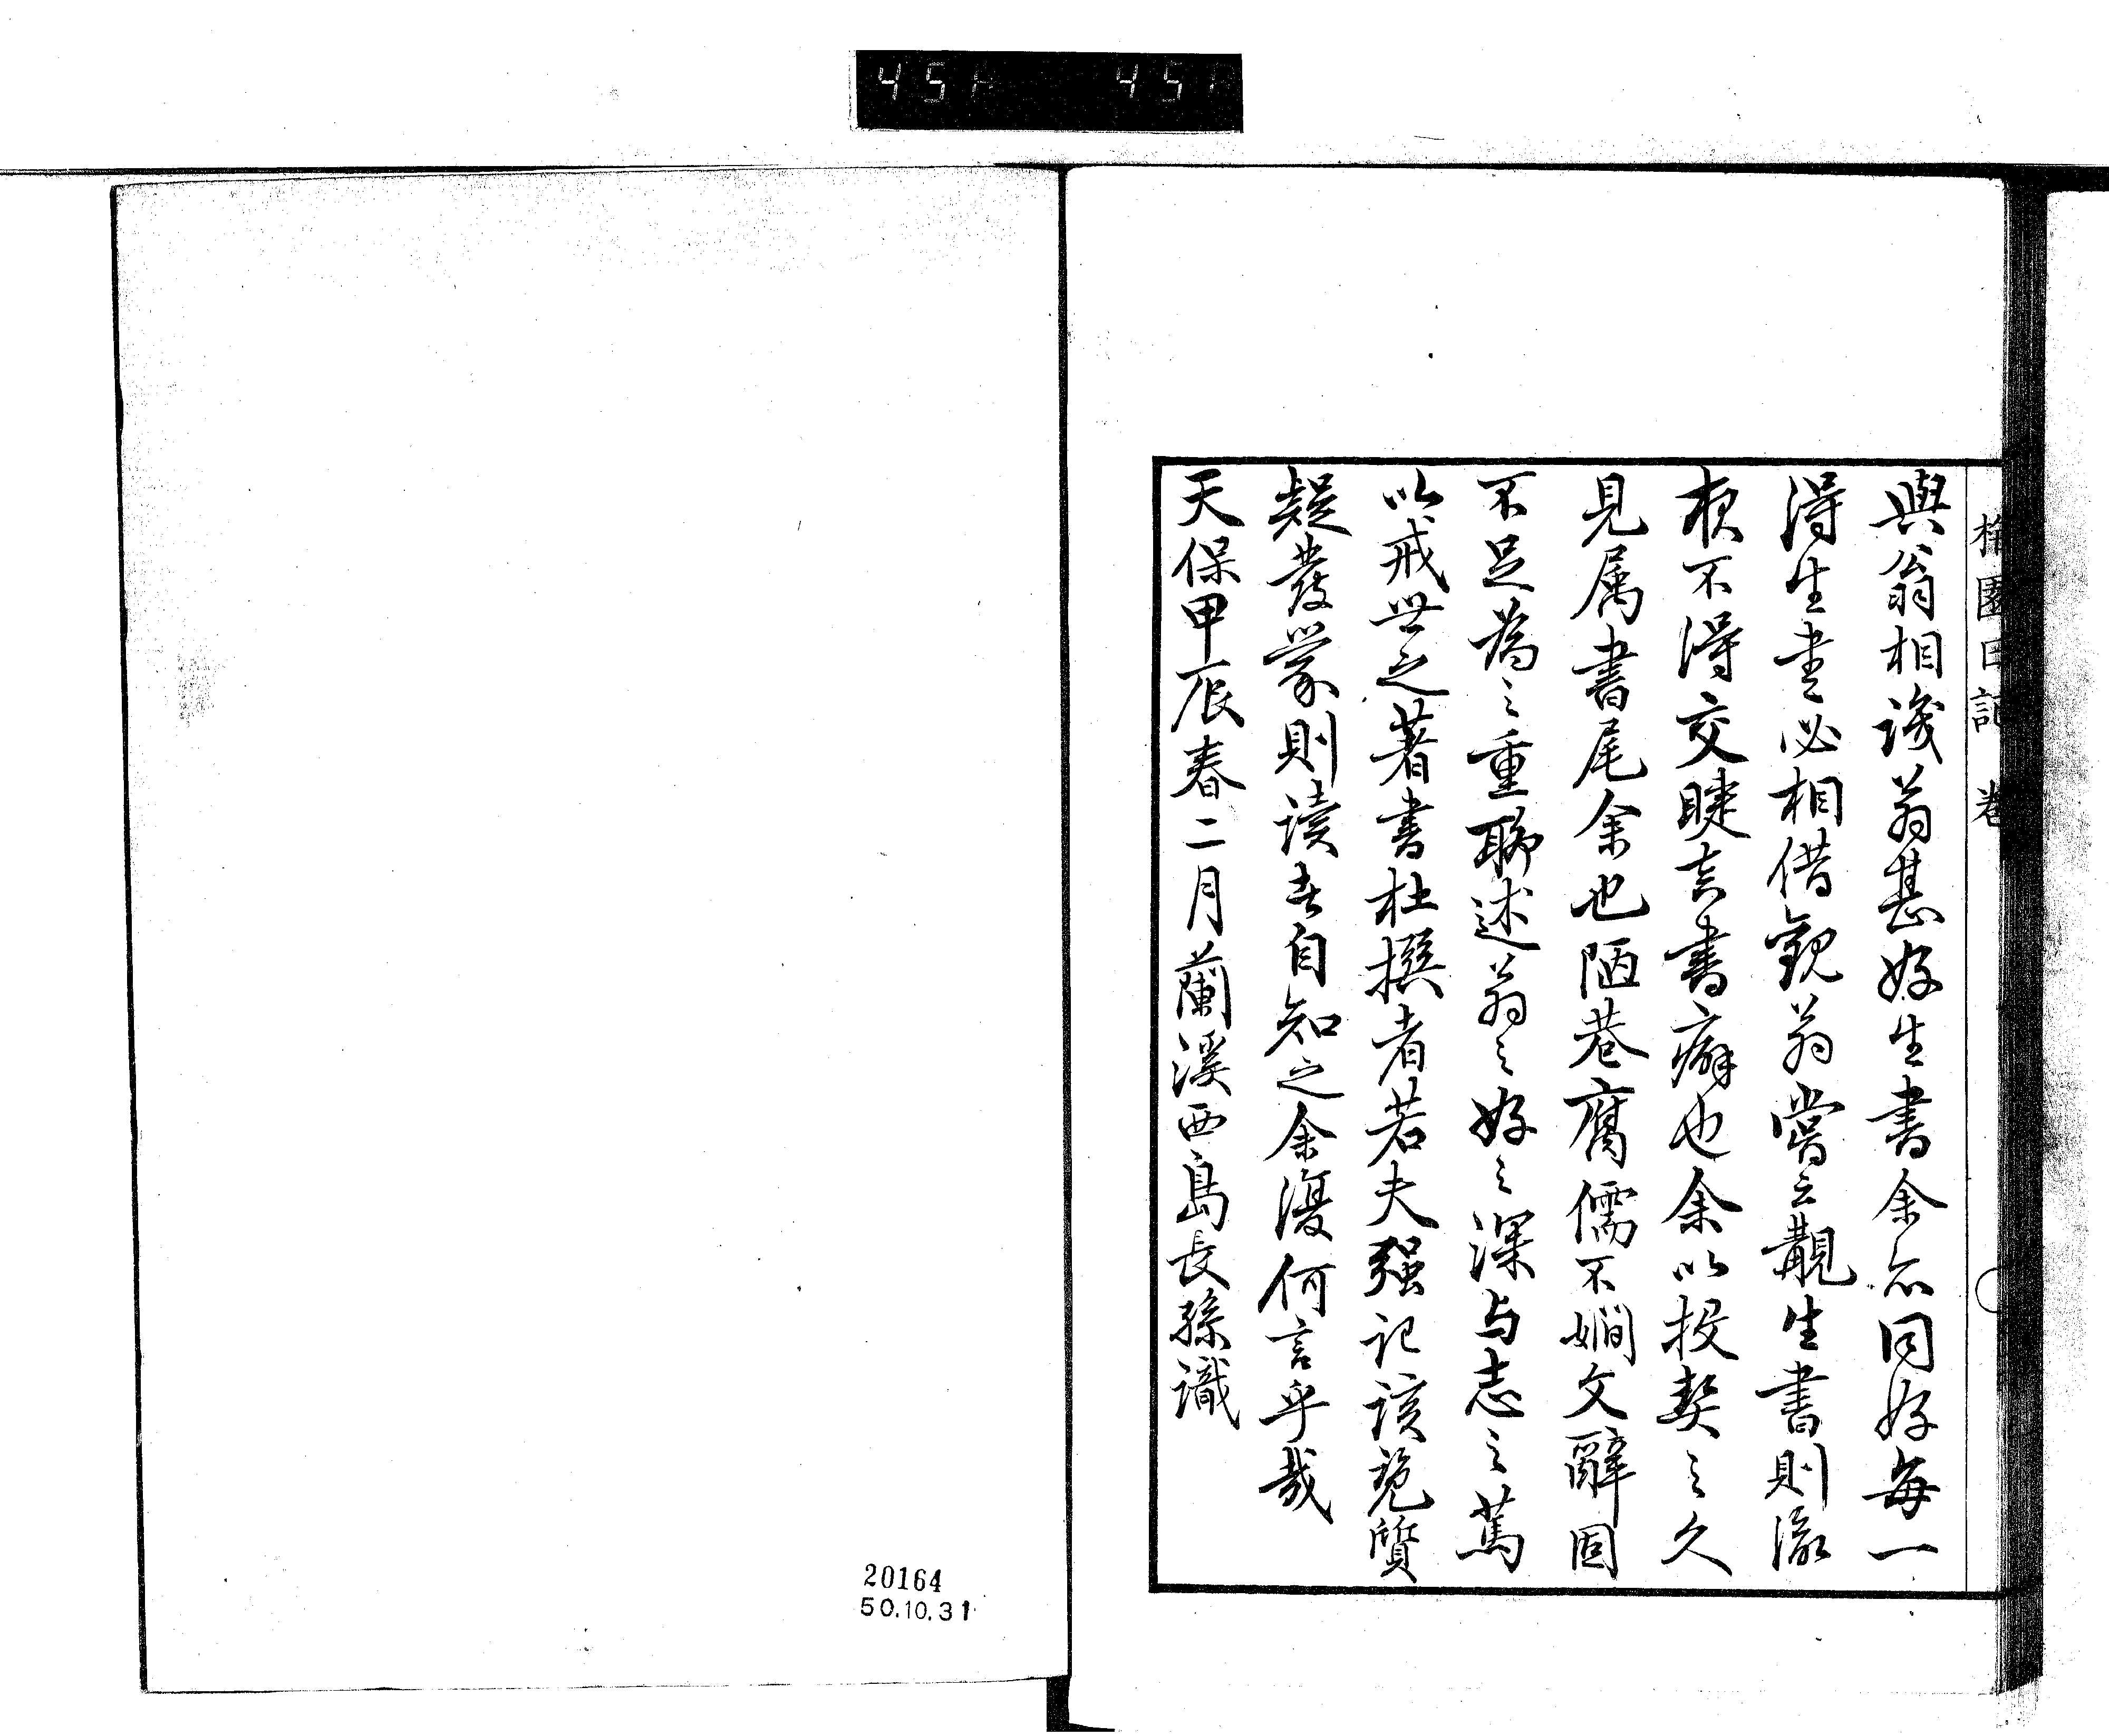 與翁相識翁甚好生書余亦同好每一
得生書必相借観翁嘗云覯生書則徹
夜不得交睫真書癖也余以投契之久
見属書尾余也陋巷腐儒不嫺文辭固
不足為之重聊述翁之好之深与志之篤
以戒世之著書杜撰者若夫强記該覧質
疑發蒙則讀者自知之余復何言乎哉
天保甲辰春二月蘭溪西島長孫識
園日記 卷
20164
50.10.31